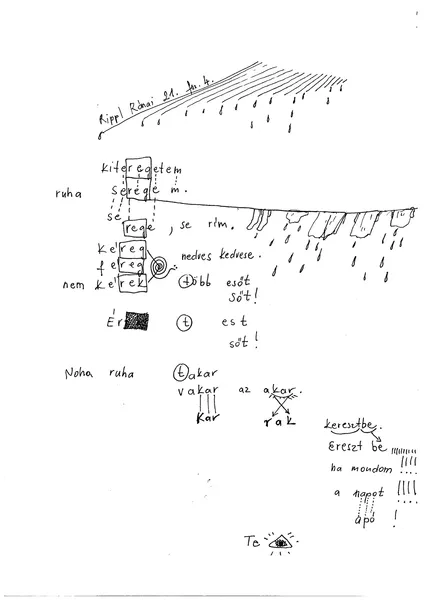 Rippl Rónai 21. fsz. 4.
kiteregetem
ruha serege m.
se
rege, se rím.
Kéreg
féreg nedves kedvese.
nem Kérek több esőt
sőt!
Ér t est
sőt!
Noha ruha takar
vakar az akar.
Kar rak
keresztbe.
Ereszt be
ha mondom
a napot
apó !
Te